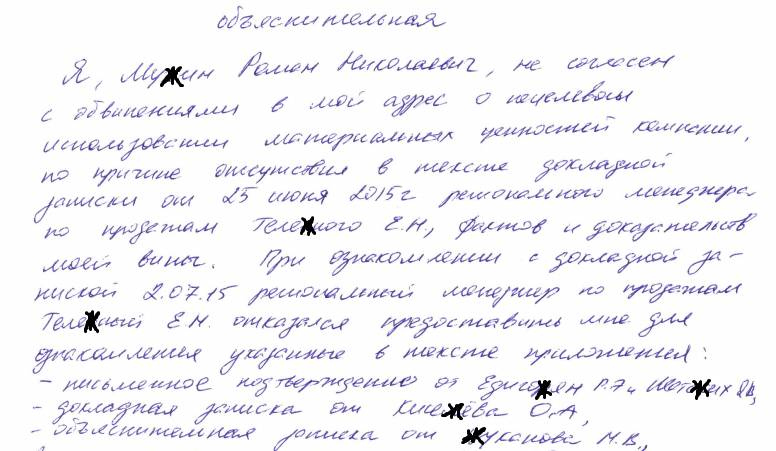 объяснительная
Я, Мужин Роман Николаевич, не согласен
с обвинениями в мой адрес о нецелевом
использовании материальных ценностей компании,
по причине отсутствия в тексте докладной
записки от 25 июня 2015г регионального менеджера
по продажам Тележного Е.Н, фактов и доказательств
моей вины. При ознакомлении с докладной за-
пиской 2.07.15 региональный менеджер по продажам
Тележный Е.Н. отказался предоставить мне для
ознакомления указанные в тексте приложения:
- письменное подтверждение от Р.Э и
- докладная записка от О.А,
- объяснительная записка от М.В.,